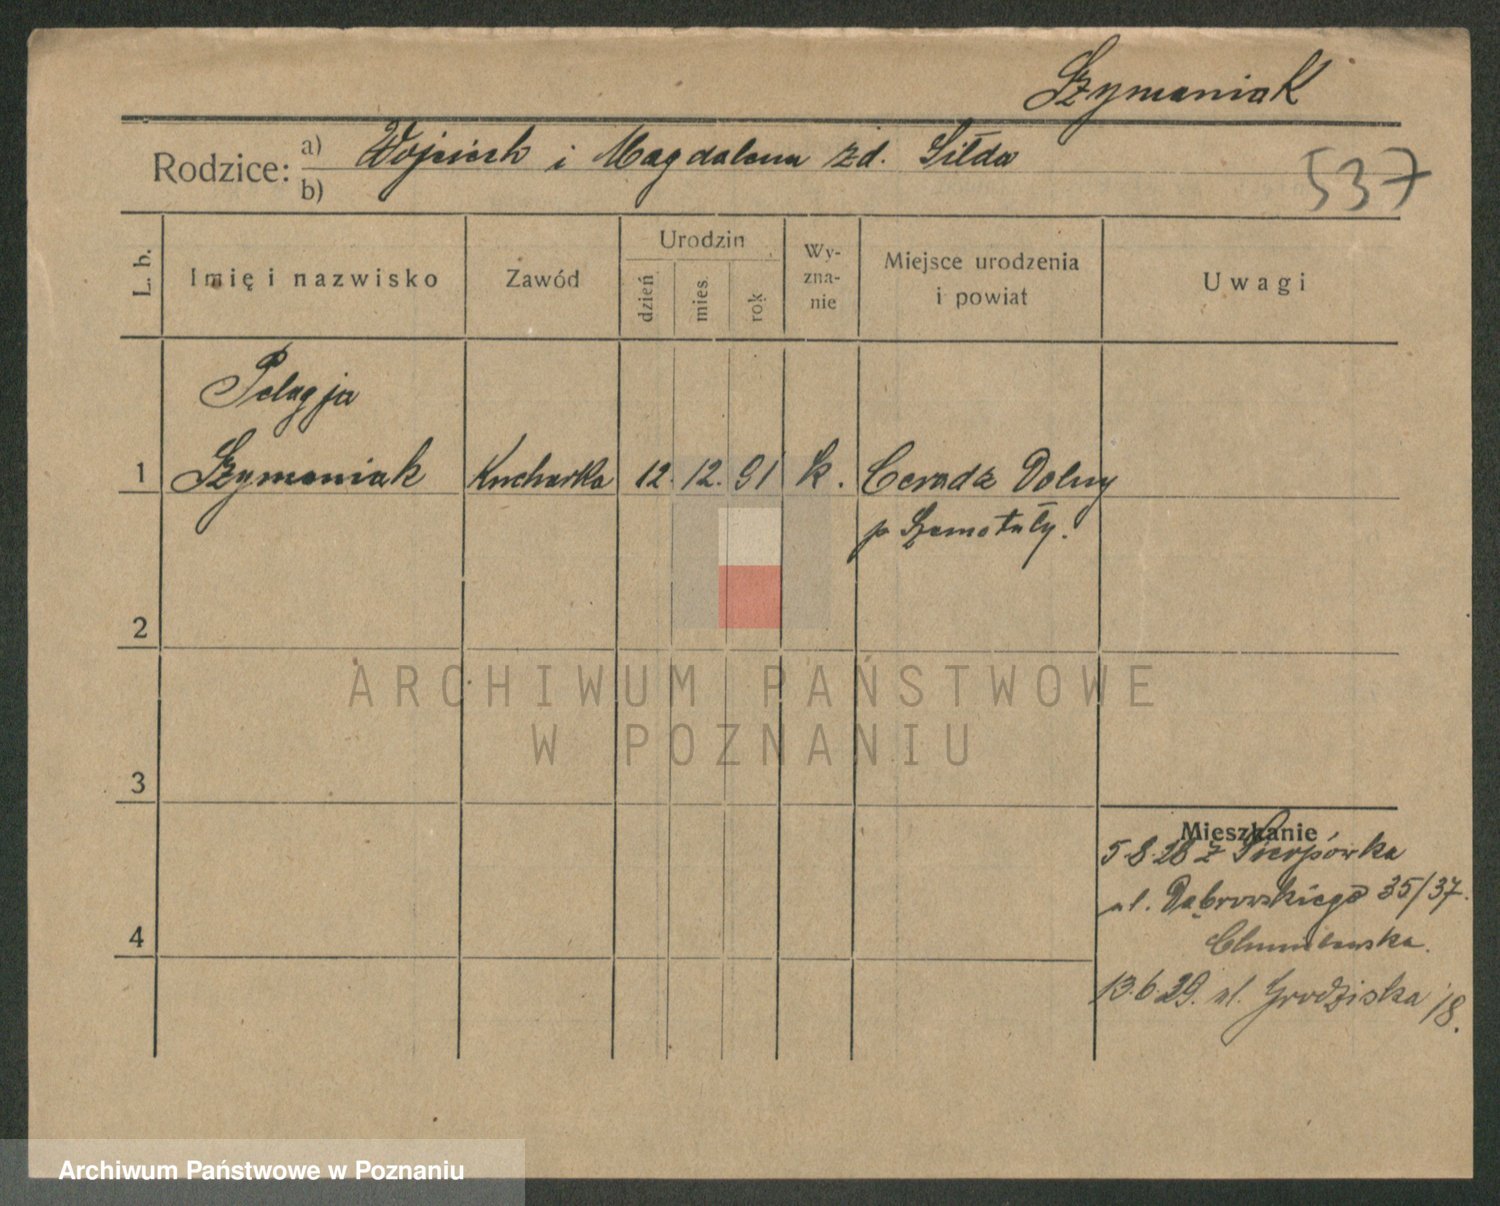 Szymaniak
Rodzice: a) Wojciech i Magdalena zd. Siłda
b)
537
L. b.
Imię i nazwisko
Zawód
Urodzin
dzień
mies.
rok
Wy-
zna-
nie
Miejsce urodzenia
i powiat
Uwagi
Pelagja
1 Szymaniak Kucharka 12. 12. 91 k. Ceradz Dolny
p Szamotuły.
2
ARCHIWUM PAŃSTWOWE
W POZNANIU
3
Mieszkanie
5.8.28 z Sierpówka
ul. Dąbrowskiego 35/37.
4
13.6.29. ul. Grodziska 18.
Archiwum Państwowe w Poznaniu